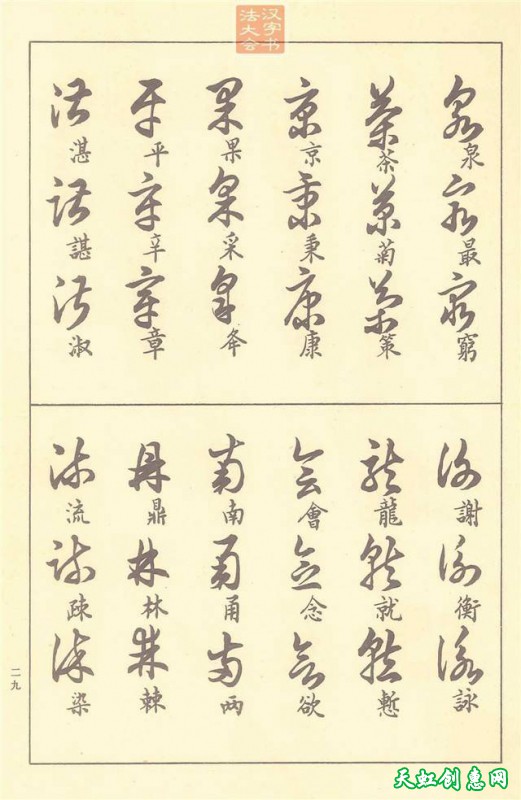 汉字书
法大会
泉 最 窮
茶 菊 策
京 秉 康
果 采 夅
平 辛 章
湛 諶 淑
謝 衡 詠
龍 就 慙
會 念 欲
南 甬 两
鼎 林 棘
流 疎 染
二九
天虹创惠网